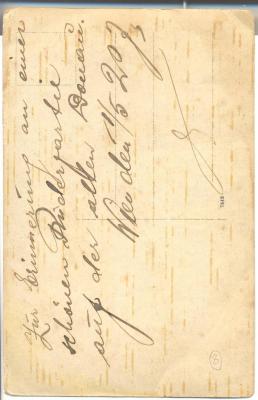 Zur Erinnerung an einer
schönen Ruderpartie
auf der alten Donau.
Wien den 11/5 20